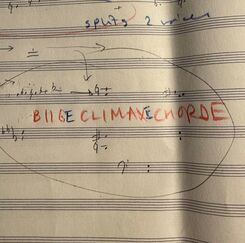 splits 2 voices
BIIGE CLIMAXE CHORDE